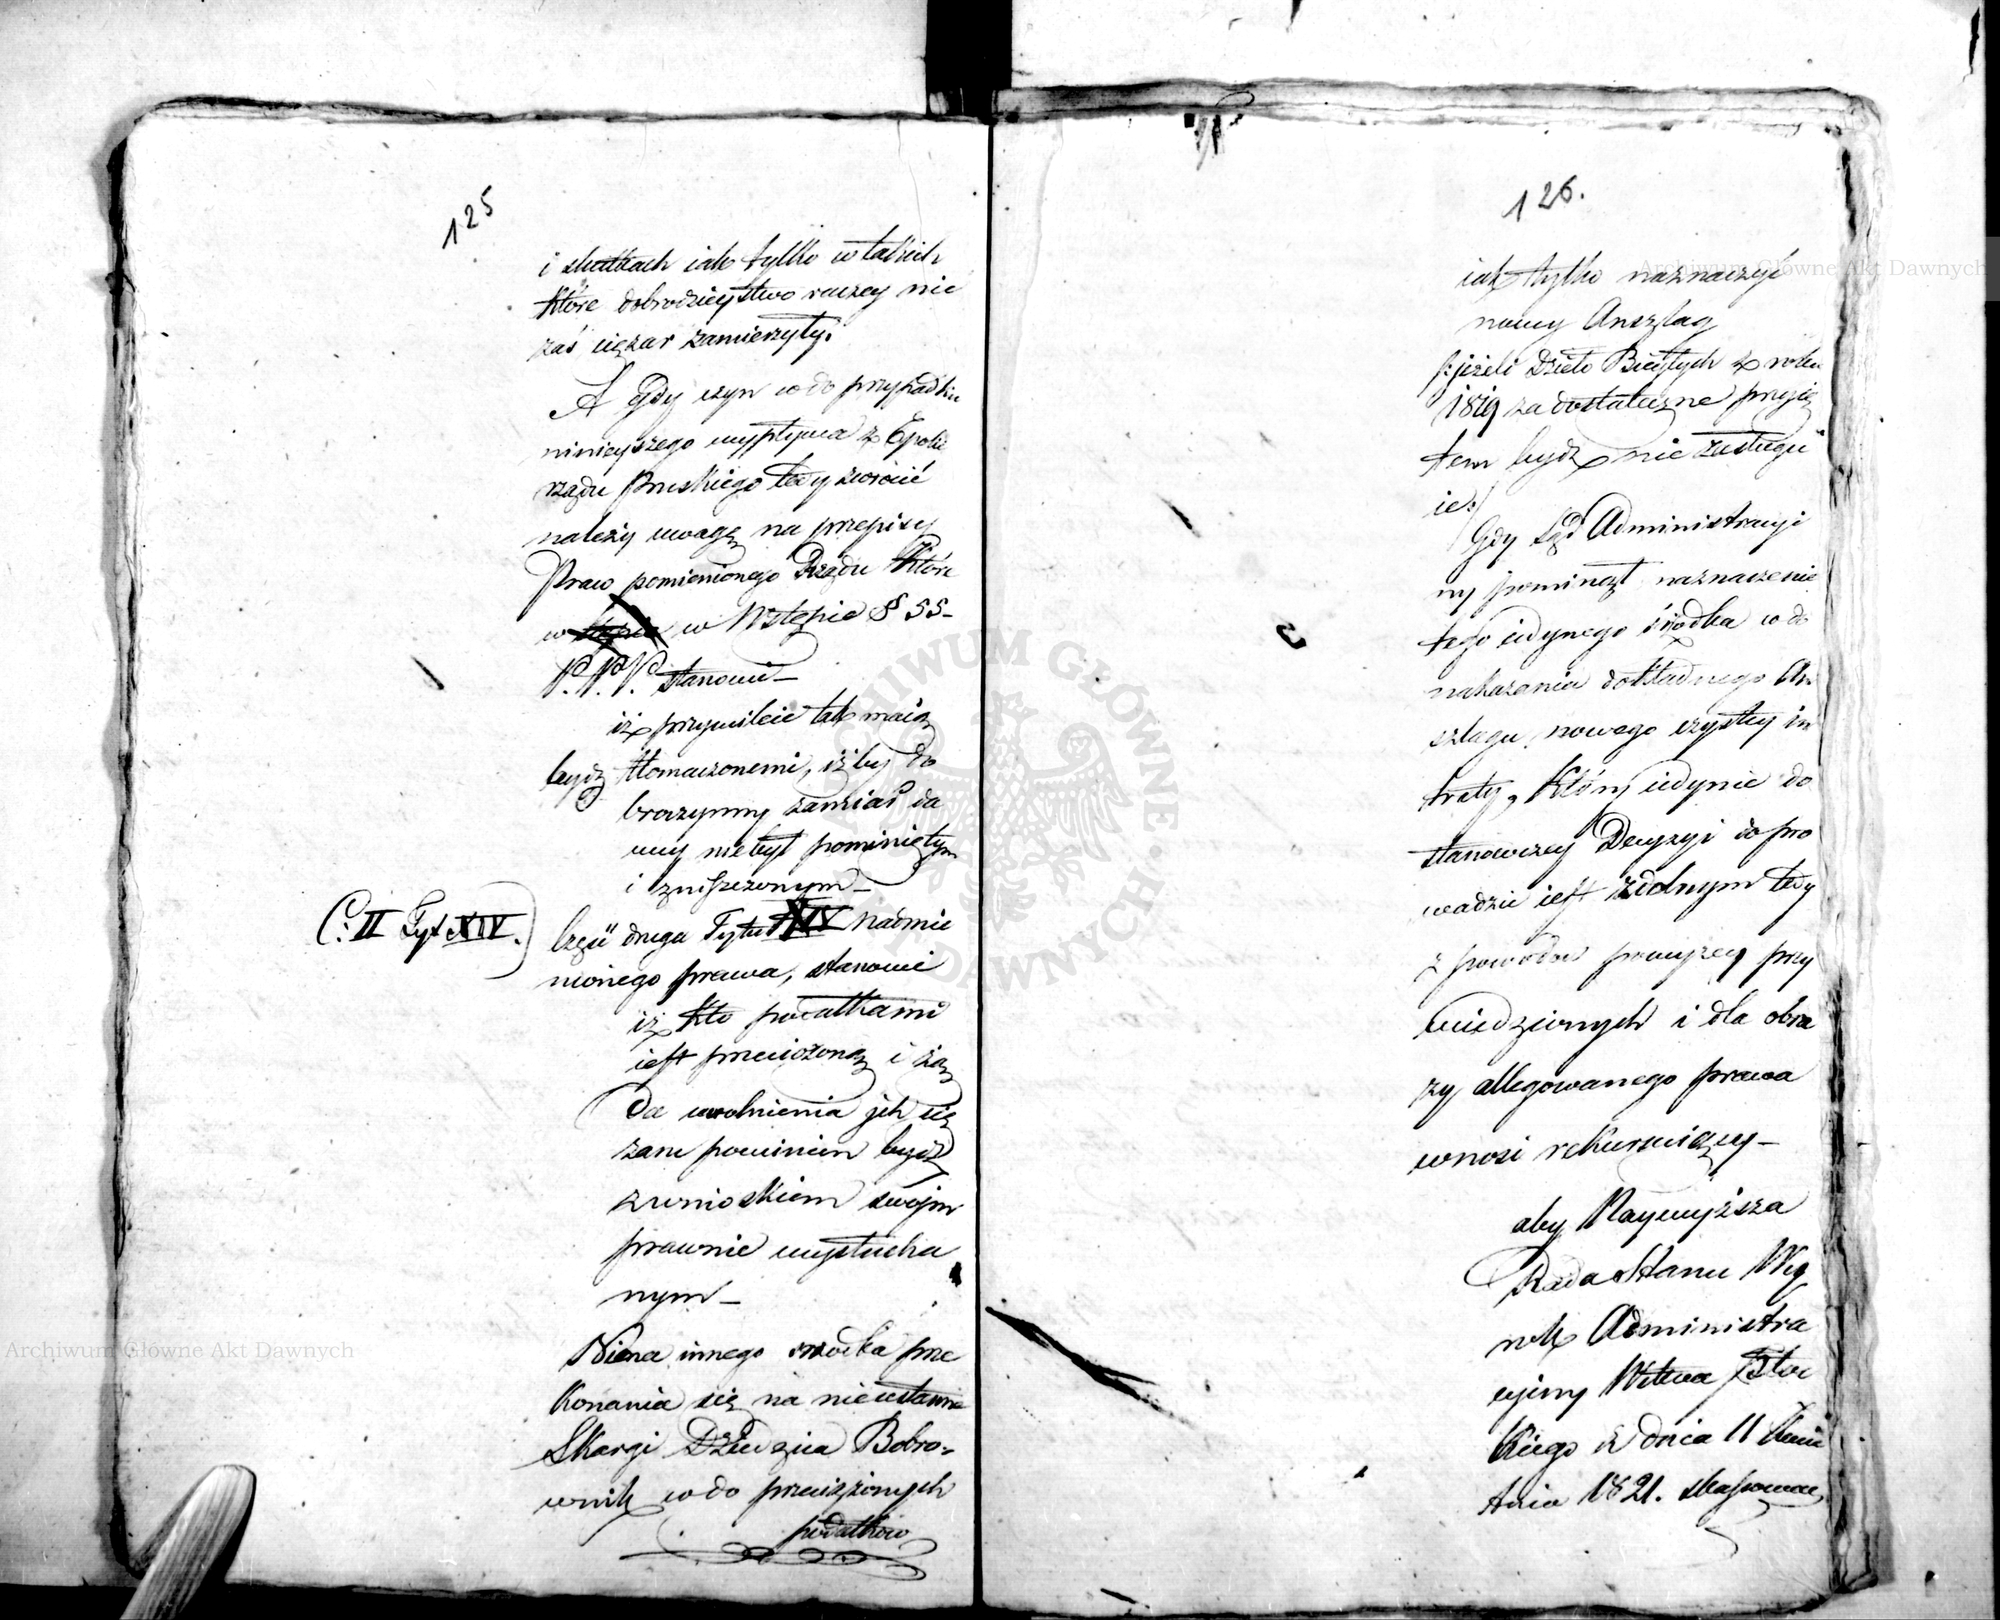 125
i skutkach iak tylko w takich
które dobrodzieystwo raczey nie
zaś ciężar zamierzyły.
A gdy czyn co do przypadku
ninieyszego wypływa z Epoki
rządu Pruskiego tedy zwrócić
należy uwagę na przepisy
Praw pomienionego Rządu które
w w Wstępie § 55 –
P. P. P. stanowi –
iż przywileie tak maią
bydź tłomaczonemi, iżby do
broczynny zamiar da
wcy niebył pominiętym
i zniszczonym –
C: II Tyt XIV.
Część druga Tytuł XIV nadmie
nionego prawa, stanowi
iż kto podatkami
iest przeciążony i żąd
da uwolnienia ich cię
żaru powinien bydź
z wnioskiem swoim
prawnie wysłucha
nym –
Niema innego srzodka prze
konania się na nieustanne
Skargi Dziedzica Bobro-
wnik co do przeciążonych
podatków
126.
iak tylko naznaczyć
nowy Anszlag
/:jeżeli Dzieło Biegłych z roku
1819 za dostateczne przyię
tem bydź nie zasługu
ie:/
Gdy Sąd Administracyi
ny pominął naznaczenie
tego iedynego środka co do
nakazania dokładnego An
szlagu, nowego czystey in
traty, który iedynie do
stanowczey Decyzyi dopro
wadzić iest zdolnym tedy
z powodów powyżey przy
wiedzionych i dla obra
zy allegowanego prawa
wnosi rekuruiący –
aby Naywyższa
Rada Stanu Wy
rok Administra
cyiny Wdztwa Płoc
kiego z dnia 11 Kwie
tnia 1821. skassować
Archiwum Główne Akt Dawnych
Archiwum Główne Akt Dawnych
ARCHIWUM GŁÓWNE AKT DAWNYCH